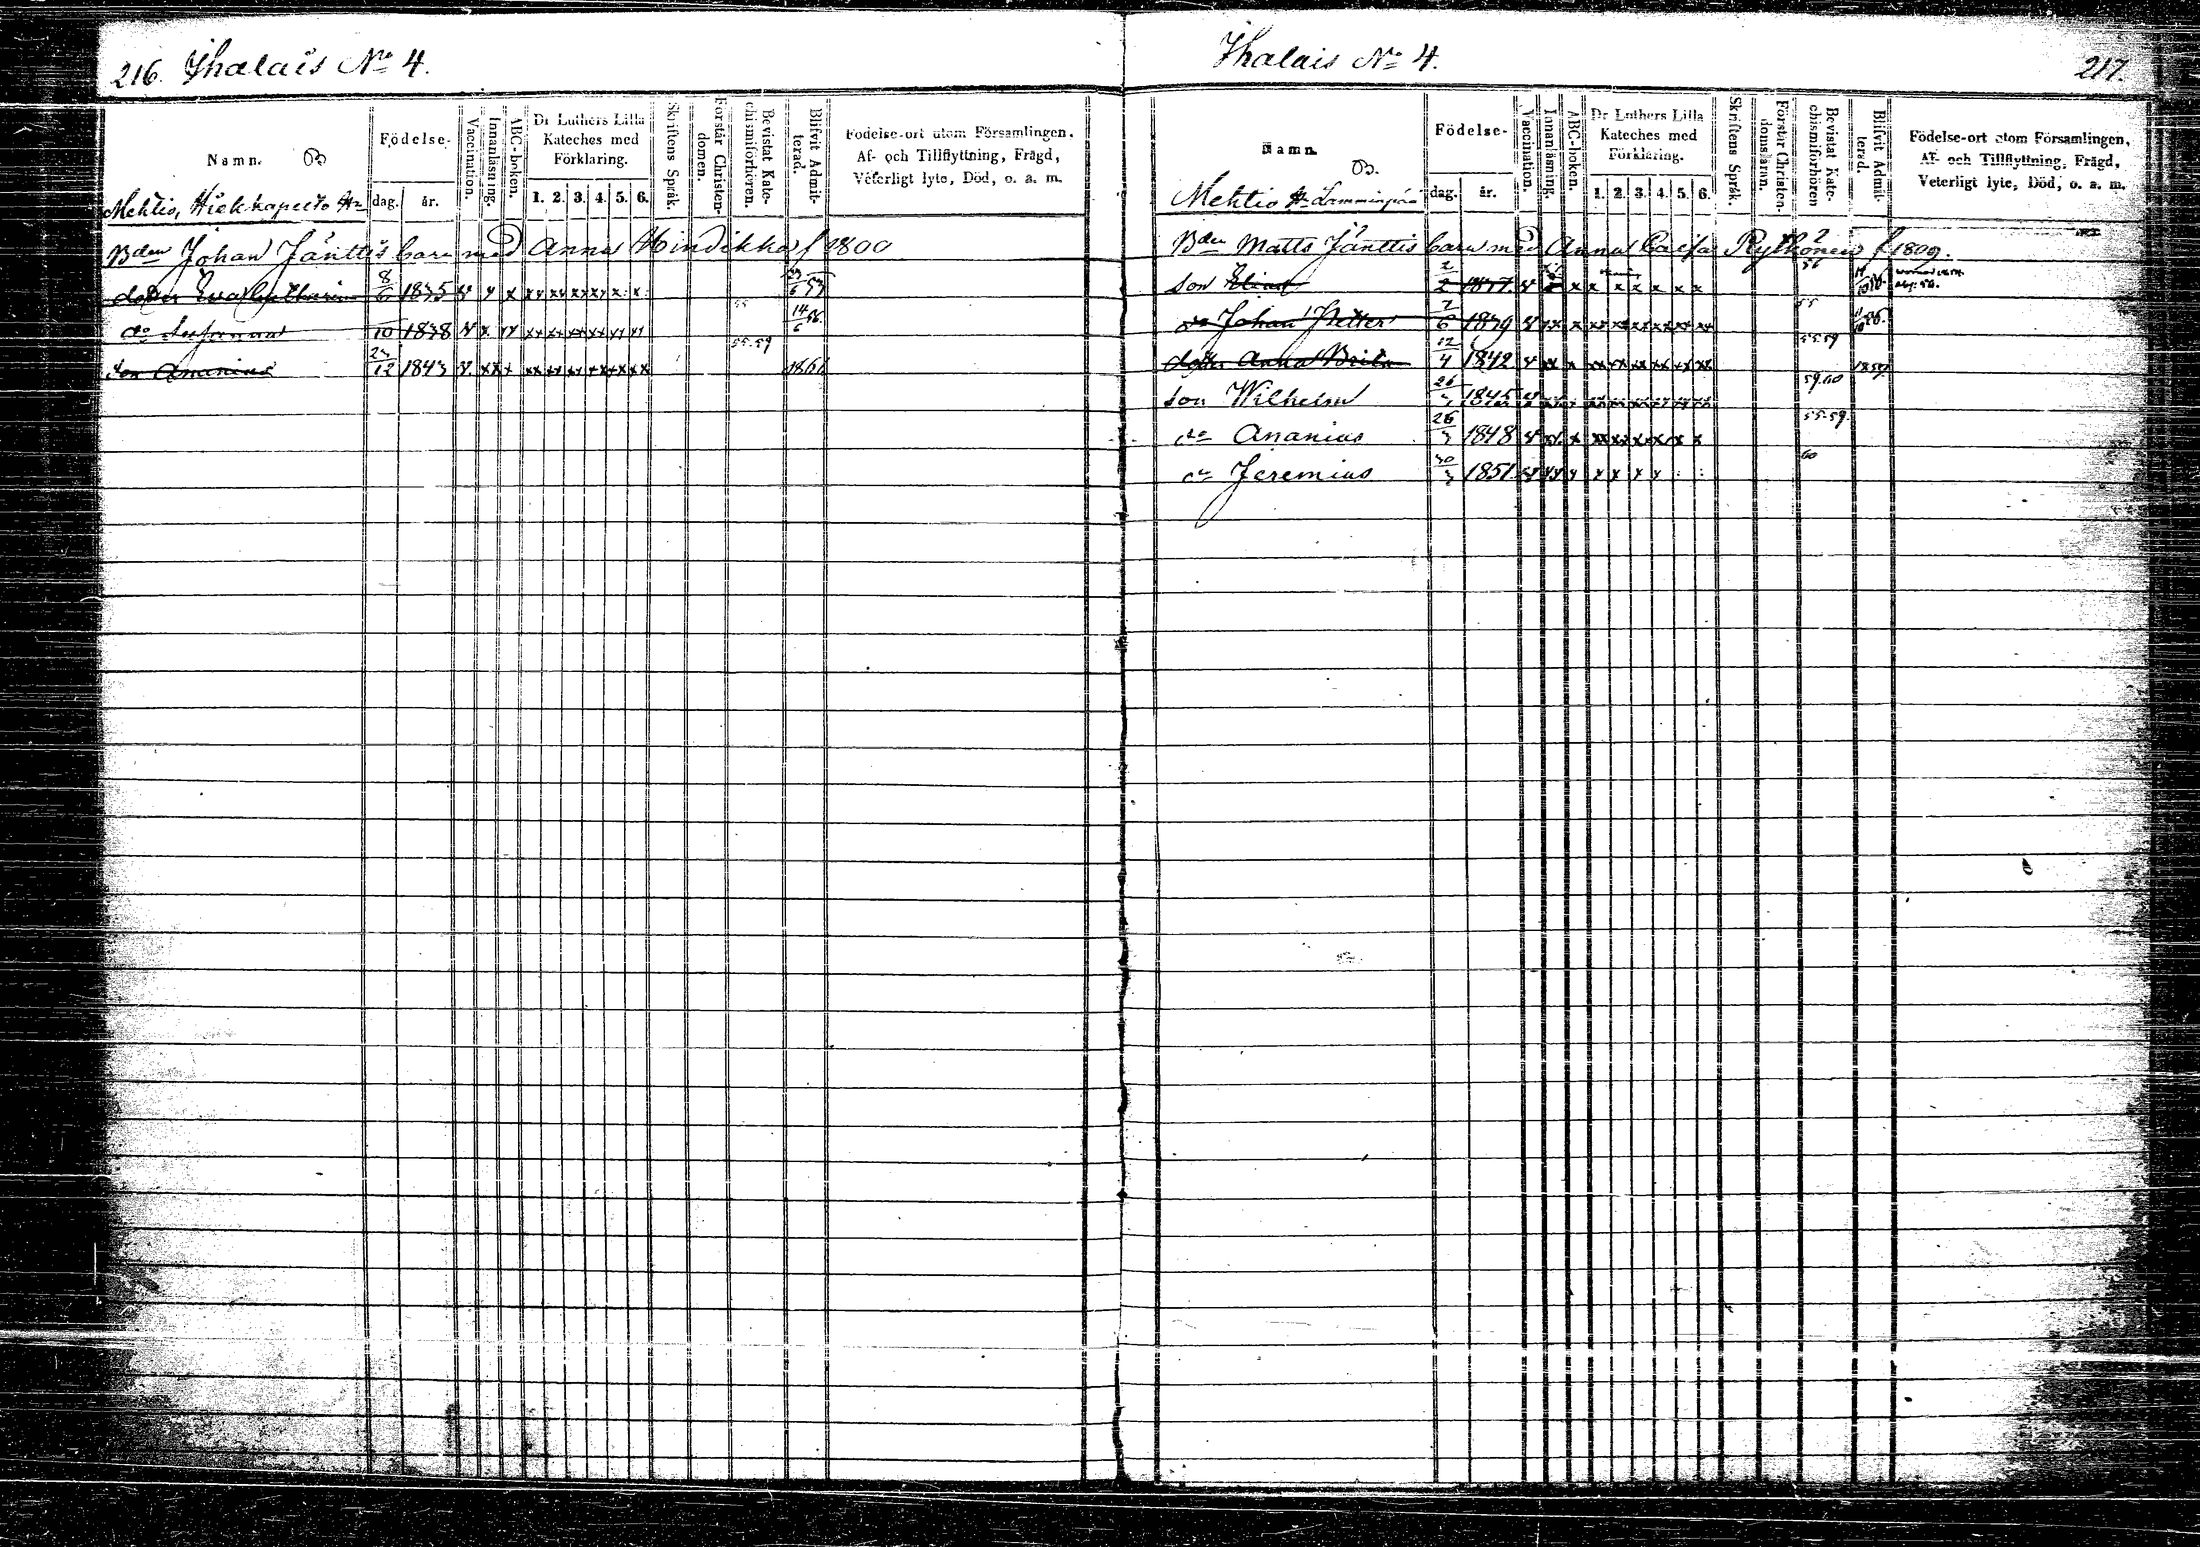 216. Ihalais No 4.
Namn. B
Födelse-
dag. år.
Vaccination.
Innanläsning.
ABC-boken.
Dr Luthers Lilla Kateches med Förklaring.
1. 2. 3. 4. 5. 6.
Skriftens Språk.
Förstår Christendomen.
Bevistat Katechismiförhören.
Blifvit Admitterad.
Födelse-ort utom Församlingen.
Af- och Tillflyttning, Frägd,
Veterligt lyte, Död, o. a. m.
Mehtio,
Bden Johan Jänttis barn med Anna Hindikka f 1800
dotter Eva Catharina 8/6 1835 23/6 53
do Susanna /10 1838 55 14/6 56.
son Ananias 23/12 1843 55.59 1861
Ihalais No 4. 217.
Namn. B.
Födelse-
dag. år.
Vaccination.
Innanläsning.
ABC-boken.
Dr Luthers Lilla
Kateches med
Förklaring.
1. 2. 3. 4. 5. 6.
Skriftens Språk.
Förstår Christendomsläran.
Bevistat Katechismiförhören
Blifvit Admitterad.
Födelse-ort utom Församlingen,
Af- och Tillflyttning, Frägd,
Veterligt lyte, Död, o. a. m.
Mehtio Lamminpää
Bden Matts Jänttis barn med Anna Caisa Rythönen f 1809.
son Elias 2/2 1837 56
do Johan Petter 2/6 1839 55
dotter Anna Brita 12/4 1842 55.59 1859
son Wilhelm 26/ 1845 59.60
do Ananias 26/3 1848 55.59.
do Jeremias 30/3 1851 60